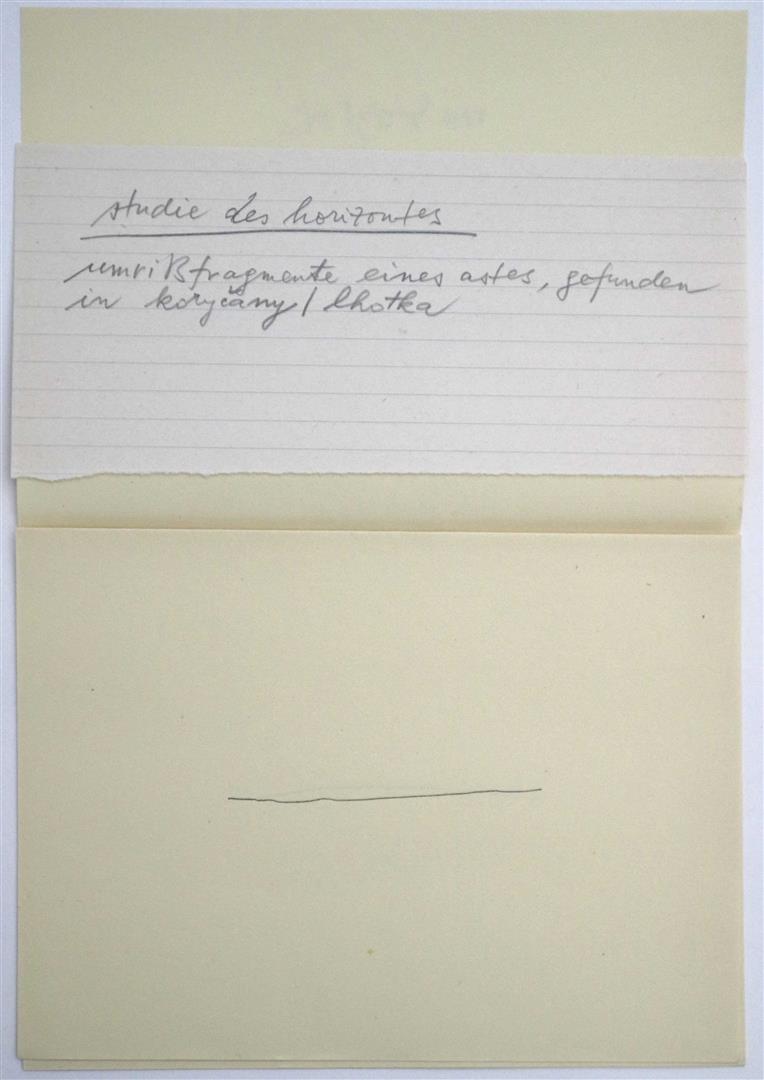 studie des horizontes
umrißfragmente eines astes, gefunden
in koryčany / lhotka